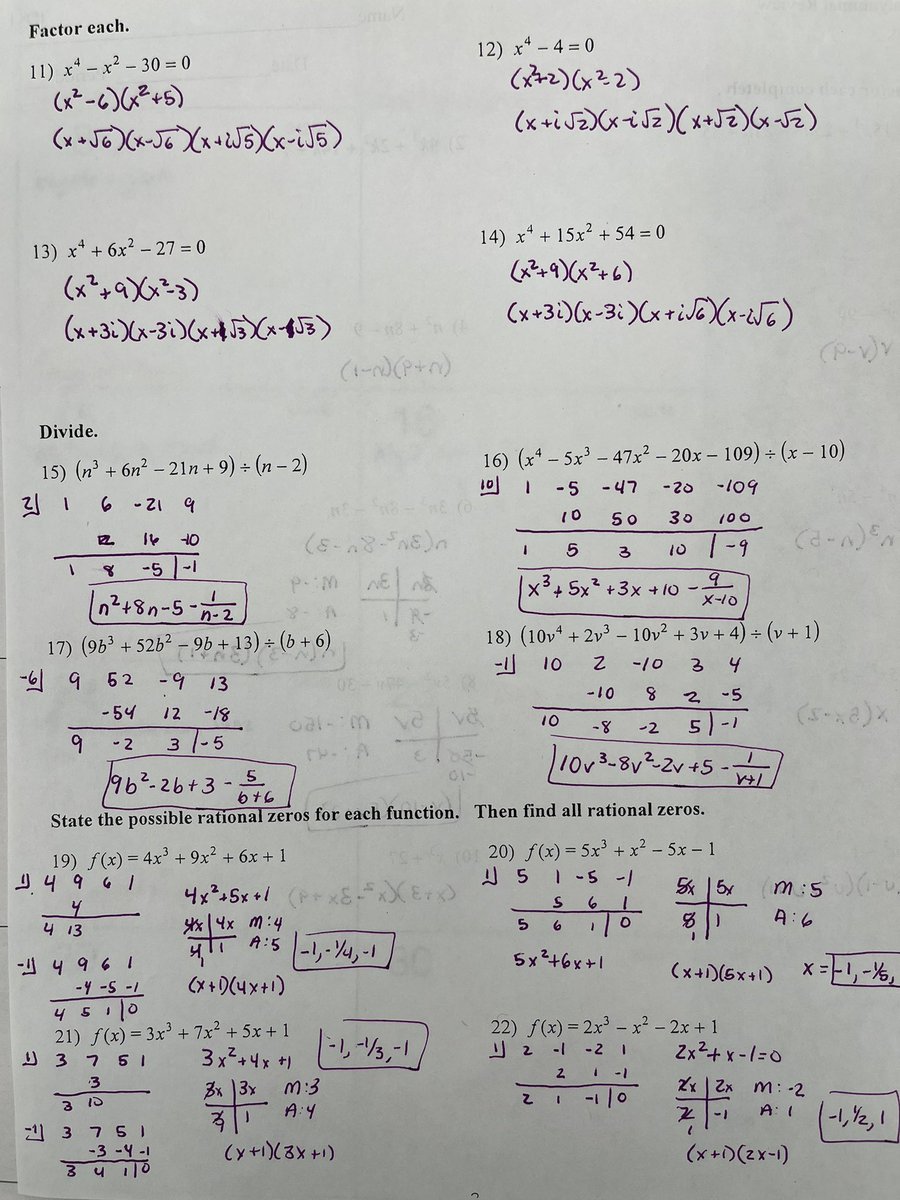 Factor each.
11) x⁴ – x² – 30 = 0
(x²-6)(x²+5)
(x+√6)(x-√6)(x+i√5)(x-i√5)
12) x⁴ – 4 = 0
(x²+2)(x²-2)
(x+i√2)(x-i√2)(x+√2)(x-√2)
13) x⁴ + 6x² – 27 = 0
(x²+9)(x²-3)
(x+3i)(x-3i)(x+√3)(x-√3)
14) x⁴ + 15x² + 54 = 0
(x²+9)(x²+6)
(x+3i)(x-3i)(x+i√6)(x-i√6)
Divide.
15) (n³ + 6n² – 21n + 9) ÷ (n – 2)
2| 1 6 -21 9
12 16 -10
1 8 -5 |-1
n²+8n-5-1/(n-2)
16) (x⁴ – 5x³ – 47x² – 20x – 109) ÷ (x – 10)
10| 1 -5 -47 -20 -109
10 50 30 100
1 5 3 10 |-9
x³+5x²+3x+10-9/(x-10)
17) (9b³ + 52b² – 9b + 13) ÷ (b + 6)
-6| 9 52 -9 13
-54 12 -18
9 -2 3 |-5
9b²-2b+3-5/(b+6)
18) (10v⁴ + 2v³ – 10v² + 3v + 4) ÷ (v + 1)
-1| 10 2 -10 3 4
-10 8 2 -5
10 -8 -2 5 |-1
10v³-8v²-2v+5-1/(v+1)
State the possible rational zeros for each function. Then find all rational zeros.
19) f(x) = 4x³ + 9x² + 6x + 1
1| 4 9 6 1
4
4 13
-1| 4 9 6 1
-4 -5 -1
4 5 1 |0
4x²+5x+1
4x | 4x M:4
4 | 1 A:5
1
(x+1)(4x+1)
-1, -1/4, -1
20) f(x) = 5x³ + x² – 5x – 1
1| 5 1 -5 -1
5 6 1
5 6 1 |0
5x²+6x+1
5x | 5x M:5
5 | 1 A:6
1
(x+1)(5x+1)
x = -1, -1/5,
21) f(x) = 3x³ + 7x² + 5x + 1
1| 3 7 5 1
3
3 10
-1| 3 7 5 1
-3 -4 -1
3 4 1 |0
3x²+4x+1
3x | 3x M:3
3 | 1 A:4
1
(x+1)(3x+1)
-1, -1/3, -1
22) f(x) = 2x³ – x² – 2x + 1
1| 2 -1 -2 1
2 1 -1
2 1 -1 |0
2x²+x-1=0
2x | 2x M:-2
2 | -1 A:1
1
(x+1)(2x-1)
-1, 1/2, 1